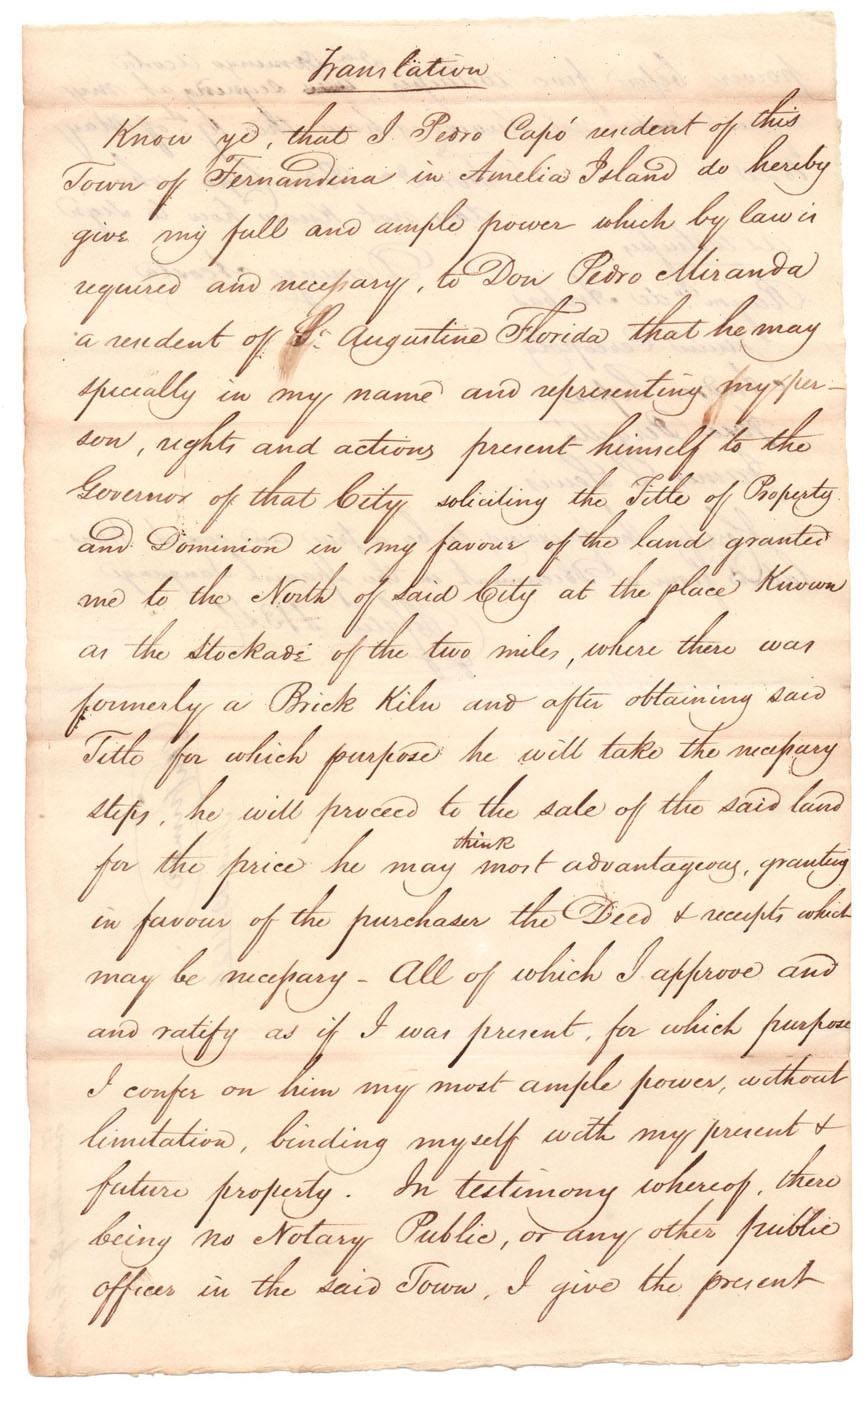 Translation
Know ye, that I Pedro Capó resident of this
Town of Fernandina in Amelia Island do hereby
give my full and ample power which by law is
required and necessary, to Don Pedro Miranda
a resident of St. Augustine Florida that he may
specially in my name and representing my per-
son, rights and actions present himself to the
Governor of that City soliciting the Title of Property
and Dominion in my favour of the land granted
me to the North of said City at the place Known
as the stockade of the two miles, where there was
formerly a Brick Kiln and after obtaining said
Title for which purpose he will take the necessary
steps, he will proceed to the sale of the said land
for the price he may think most advantageous, granting
in favour of the purchaser the Deed & receipts which
may be necessary - All of which I approve and
and ratify as if I was present, for which purpose
I confer on him my most ample power, without
limitation, binding myself with my present &
future property. In testimony whereof, there
being no Notary Public, or any other public
officer in the said Town, I give the present